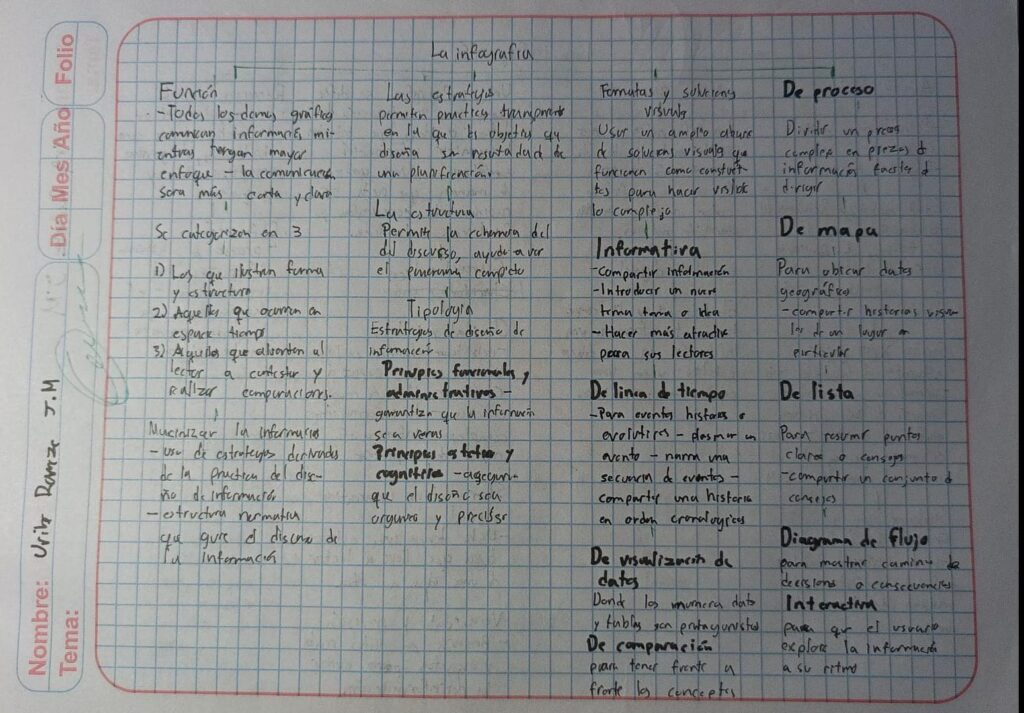 Folio
Año
Mes
Día
Nombre: Uribe J.M
Tema:
La infografia
Función
- Todos los demas gráficos
comunican información mi-
entras tengan mayor
enfoque - la comunicación
sera más corta y clara
Se categorizan en 3
1) Los que ilustran forma
y estructura
2) Aquellos que ocurren en
espacio tiempo
3) Aquellos que al lector a y
realizar comparaciones.
la información
- uso de estrategias derivadas
de la practica del dise-
ño de información
- estructura normativa
que guie el diseño de
la información
Las estrategias
permiten practica
en la que los objetos que
diseña un resultado de
una planificación
La estructura
Permite la coherencia del
del discurso, ayuda a ver
el panorama completo
Tipología
Estrategias de diseño de
información
Principios funcionales y
administrativos -
garantiza que la información
sea veras
Principios y
cognitivos - asegura
que el diseño sea
organico y
Formatos y soluciones
visuales
Usar un amplio
de soluciones visuales que
funcionen como
para hacer visible
lo complejo
Informativa
- Compartir información
- Introducir un nuevo
tema o idea
- Hacer más
para sus lectores
De linea de tiempo
- Para eventos o
evolutivos - plasmar un
evento - narra una
secuencia de eventos -
compartir una historia
en orden cronologicos
De visualización de
datos
Donde los datos
y tablas son protagonistas
De comparación
para tener frente a
frente los conceptos
De proceso
Dividir un proceso
complejo en piezas de
información faciles de
dirigir
De mapa
Para ubicar datos
geográficos
- compartir historias visua-
les de un lugar en
particular
De lista
Para resumir puntos
clave o consejos
- compartir un conjunto de
consejos
Diagrama de flujo
para mostrar camino de
decisiones o consecuencias
Interactiva
para que el usuario
explore la información
a su ritmo